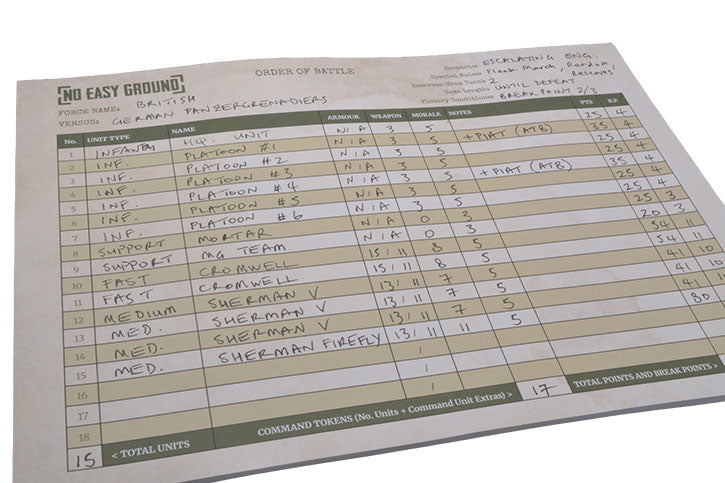 NO EASY GROUND
ORDER OF BATTLE
Scenario: ESCALATING ENG.
Special Rules: Flank March, Random Reserves
Reserves (Free Turn): 2
Game Length: UNTIL DEFEAT
Victory Conditions: BREAK POINT 2/3
FORCE NAME: BRITISH
VERSUS: GERMAN PANZERGRENADIERS
No. UNIT TYPE NAME ARMOUR WEAPON MORALE NOTES PTS B.P.
1 INFANTRY H.Q. UNIT N/A 3 5 25 4
2 INF. PLATOON #1 N/A 3 5 +PIAT (ATB) 35 4
3 INF. PLATOON #2 N/A 3 5 25 4
4 INF. PLATOON #3 N/A 3 5 25 4
5 INF. PLATOON #4 N/A 3 5 +PIAT (ATB) 35 4
6 INF. PLATOON #5 N/A 3 5 25 4
7 INF. PLATOON #6 N/A 3 5 25 4
8 SUPPORT MORTAR N/A 0 3 25 3
9 SUPPORT MG TEAM N/A 0 3 20 3
10 FAST CROMWELL 15/11 8 5 54 11
11 FAST CROMWELL 15/11 8 5 54 11
12 MEDIUM SHERMAN V 13/11 7 5 41 10
13 MED. SHERMAN V 13/11 7 5 41 10
14 MED. SHERMAN V 13/11 7 5 41
15 MED. SHERMAN FIREFLY 13/11 11 5 80
16 /
17 /
18 /
15 < TOTAL UNITS COMMAND TOKENS (No. Units + Command Unit Extras) > 17 TOTAL POINTS AND BREAK POINTS >